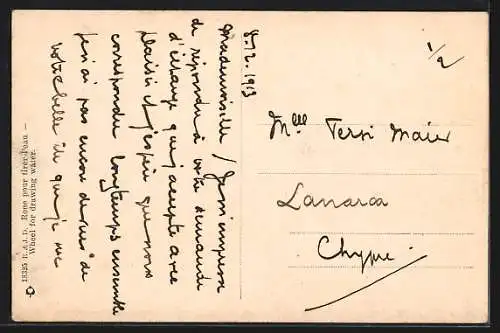 8-12.1913
Mademoiselle, Je m'empresse
de répondre à votre demande
d'échange que j'accepte avec
plaisir et j'espère que nous
correspondrons longtemps ensemble
je n'ai pas encore de vues de
votre belle île que je ne
1/2
Mlle Terri Maier
Larnaca
Chypre
18325 R. & J. D. Roue pour tirer l'eau. —
Wheel for drawing water.